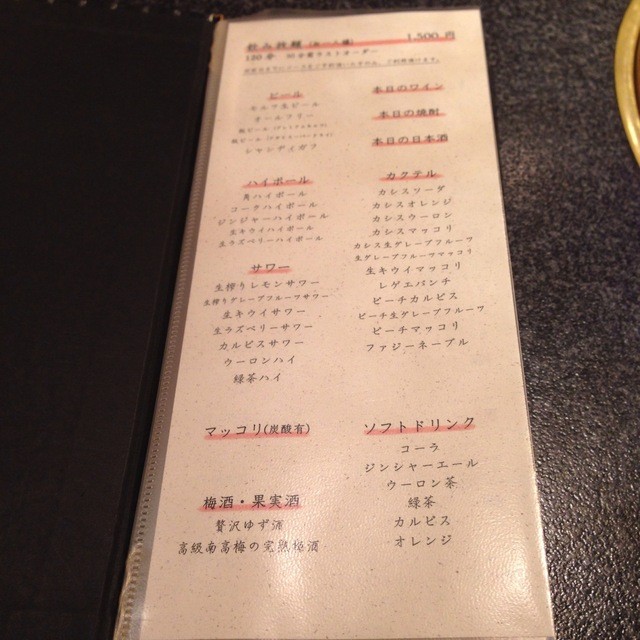 飲み放題(お一人様) 1,500円
120分 30分前ラストオーダー
ビール
モルツ生ビール
オールフリー
瓶ビール(プレミアムモルツ)
シャンディガフ
ハイボール
角ハイボール
コークハイボール
ジンジャーハイボール
生キウイハイボール
生ラズベリーハイボール
サワー
生搾りレモンサワー
生搾りグレープフルーツサワー
生キウイサワー
生ラズベリーサワー
カルピスサワー
ウーロンハイ
緑茶ハイ
マッコリ(炭酸有)
梅酒・果実酒
贅沢ゆず酒
高級南高梅の完熟梅酒
本日のワイン
本日の焼酎
本日の日本酒
カクテル
カシスソーダ
カシスオレンジ
カシスウーロン
カシスマッコリ
カシス生グレープフルーツ
生グレープフルーツマッコリ
生キウイマッコリ
レゲエパンチ
ピーチカルピス
ピーチ生グレープフルーツ
ピーチマッコリ
ファジーネーブル
ソフトドリンク
コーラ
ジンジャーエール
ウーロン茶
緑茶
カルピス
オレンジ